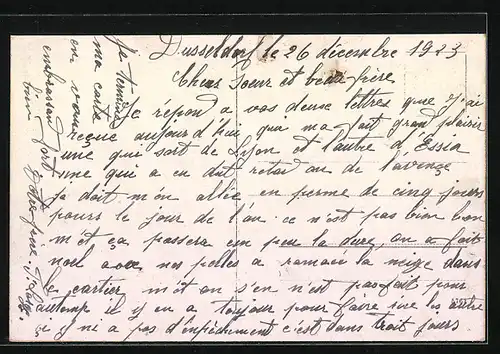 Dusseldorf le 26 décembre 1923
Chers Soeur et beau frère
Je répond a vos deuse lettres que j'ai
reçue aujourd'hui qui ma fait grand plaisir
une qui sort de Lyon et l'autre d'Essia
une qui a eu du retard ou de l'avence
je doit m'en allée en perme de cinq jours
pours le jour de l'an. ce n'est pas bien bon
mét ça passera un peu la dure, on a fait
noel avec nos pelles a ramacé la neige dans
le cartier mét on s'en n'est pas fait pour
autemp il y en a toujour pour faire rire les autre
si y ni a pas d'inpéchement c'est dans trait jours
Je termine
ma carte
en vous
embrassan fort
bien
Votre frère